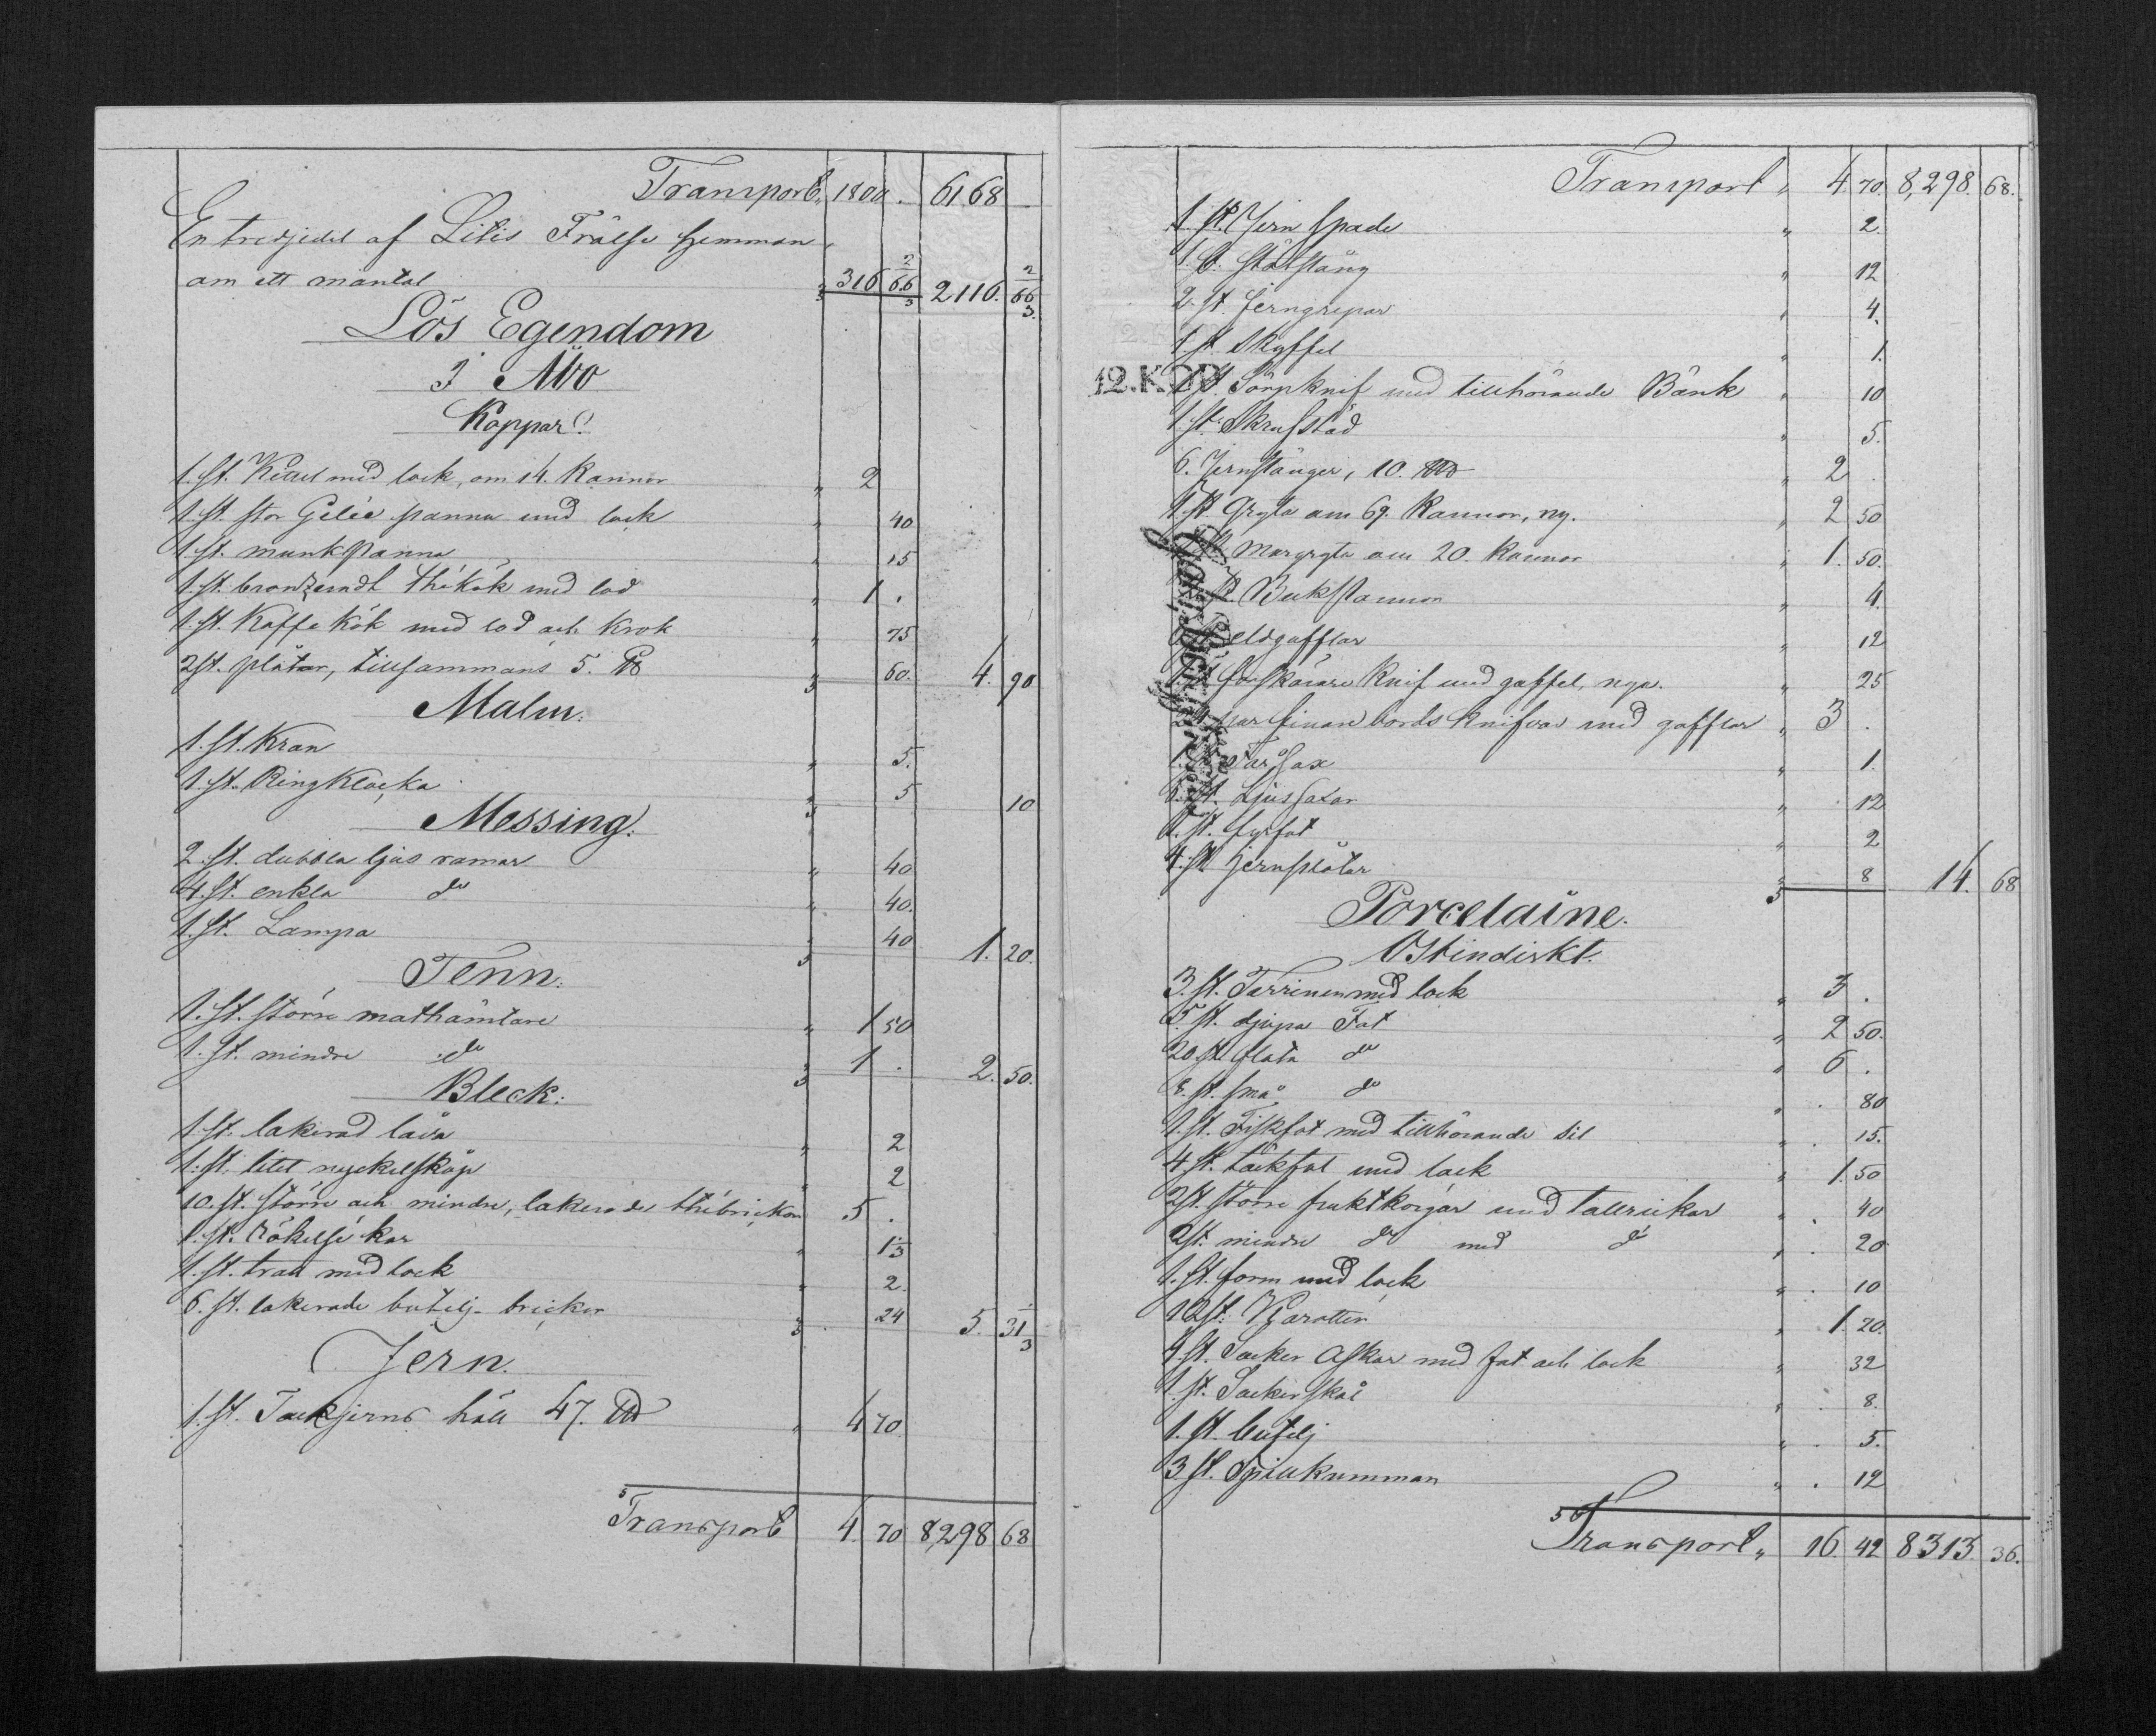 Transport „ 1800 . 6168 -
En tredjedel af Litis Frälse hemman
om ett mantal 316 66 2/3 2116. 66 2/3.
Lös Egendom
I Åbo
Koppar:
1. st. Kittel med lock, om 14. Kannor „ 2
1. st. stor Gelée panna med lock „ 40
1. st. munkpanna „ 15
1. st. bronzeradt thékök med lod „ 1 .
1. st. Kaffe Kök med lod och Krok „ 75
2 st. plåtar, tillsammans 5. ℔ „ 60. 4. 90
Malm:
1. st. Kran „ 5.
1. st. Ringklocka „ 5 10
Messing:
2. st. dubbla ljus ramar „ 40
4. st. enkla do „ 40.
1. st. Lampa „ 40 1. 20.
Tenn:
1. st. större mathämtare „ 1 50
1. st. mindre do „ 1 . 2. 50.
Bleck:
1. st. lakerad låda „ 2
1. st. litet nyckelskåp „ 2
10. st. större och mindre, lakerade thébrickor 5 .
1. st. Rökelse kar „ 1 1/3
1. st. tratt med lock „ 2
6. st. lakerade butelj- brickor „ 24 5. 31 1/3
Jern.
1. st. Tackjerns häll 47. ℔ „ 4 70
Transport 4. 70 8,298 68
Transport „ 4. 70. 8,298. 68.
1. st. Jern spade „ 2.
1. d: stötstång „ 12
2. st. jerngrepar „ 4.
1. st. Skyffel „ 1.
12.KOP.
1. st. Sörpknif med tillhörande Bänk „ 10
1. st. Skrufstäd „ 5.
6. Jernstänger, 10. ℔ „ 2 .
1. st. Gryta om 69. Kannor, ny. „ 2 50
1. st. Morgryta om 20. Kannor „ 1. 50.
„ 4.
st. eldgafflar „ 12
1. st. förskärare Knif med gaffel, nya. „ 25
par finare bords Knifvar med gafflar „ 3 .
1. st. Fårsax „ 1.
6. st. Ljussaxar „ 12
1. st. fyrfat „ 2
4. st. jernplåtar „ 8 14. 68
Porcelaine.
Ostindiskt.
3. st. Terriner med lock „ 3 .
5. st. djupa Fat „ 2 50.
20 st. flata do „ 6 .
8. st. små do „ . 80
1. st. Fiskfat med tillhörande sil „ . 15.
4. st. täckfat med lock „ 1. 50
2 st. större fruktkorgar med tallrickar „ . 40
2 st. mindre do med do „ . 20
1. st. form med lock „ . 10
12 st. Karotter „ 1. 20.
4 st. Socker Askar med fat och lock „ 32
1. st. Sockerskål „ . 8.
1. st. butelj „ . 5.
3 st. Spillkummar „ . 12
Transport „ 16. 42 8313. 36.